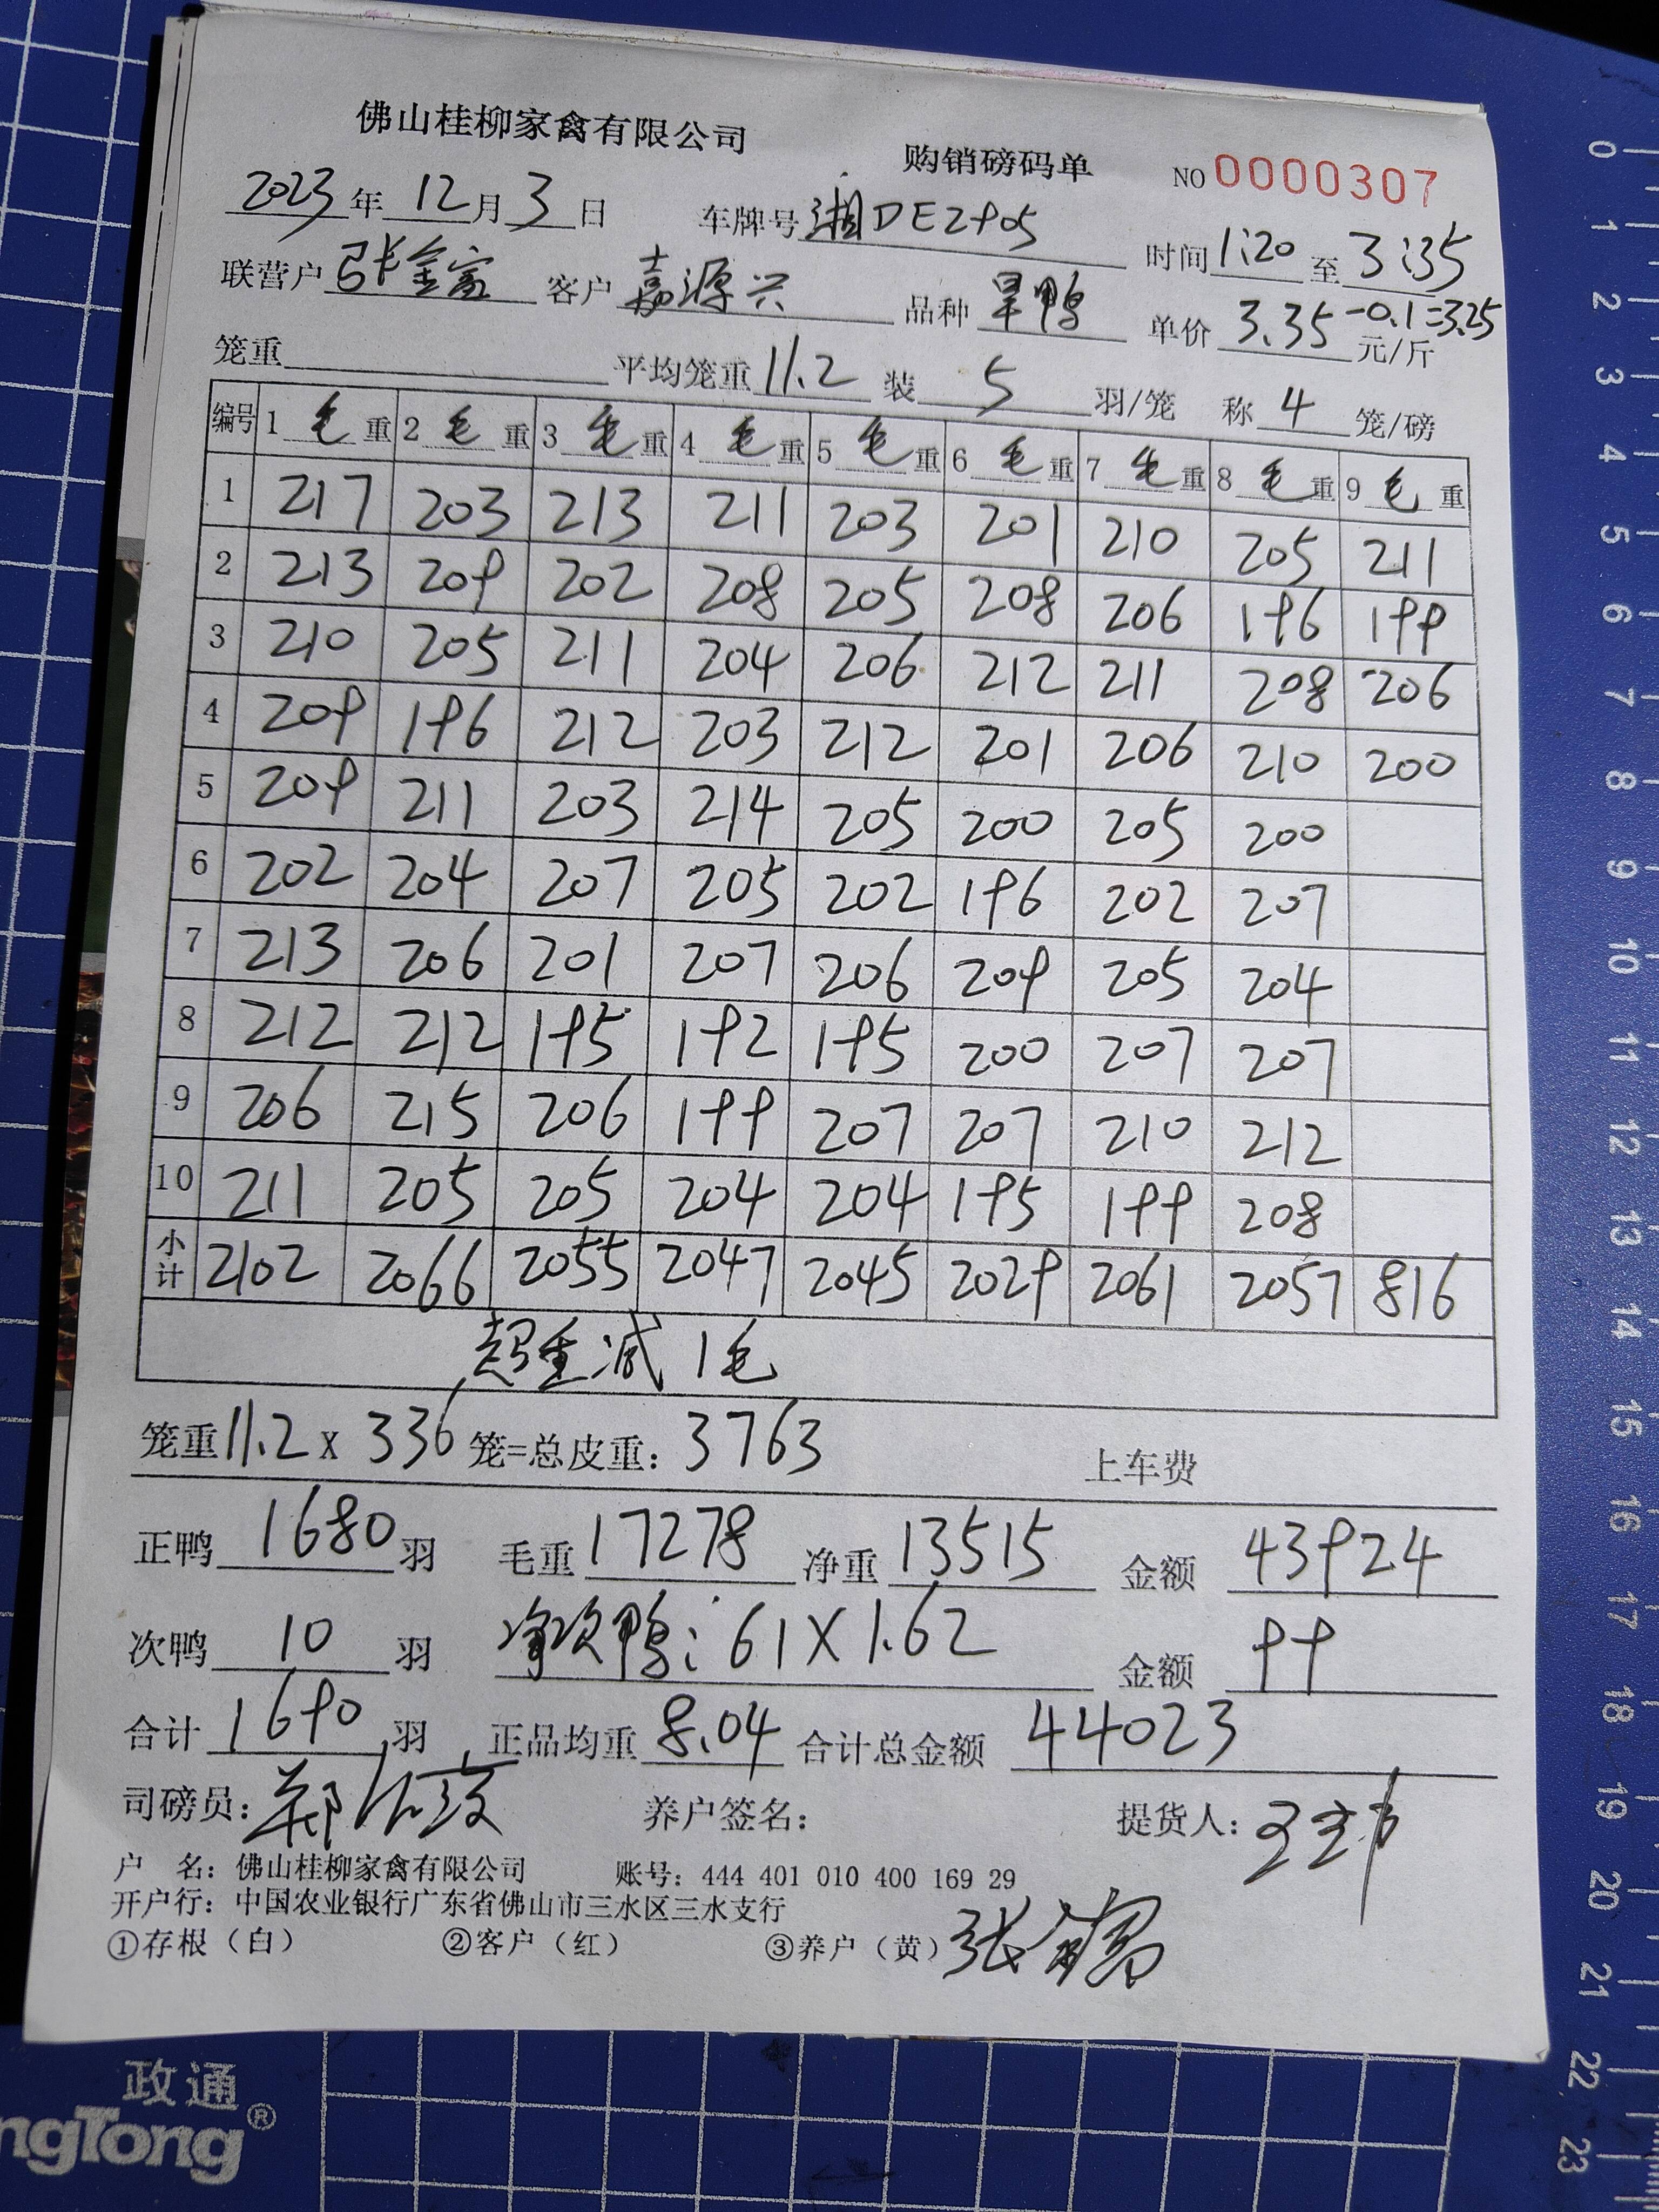 佛山桂柳家禽有限公司 购销磅码单 NO 0000307
2023年12月3日 车牌号湘DE2905 时间1:20至3:35
联营户张金富 客户嘉源兴 品种旱鸭 单价3.35-0.1=3.25元/斤
笼重 平均笼重11.2 装5羽/笼 称4笼/磅
编号 1毛重 2毛重 3毛重 4毛重 5毛重 6毛重 7毛重 8毛重 9毛重
1 217 203 213 211 203 201 210 205 211
2 213 209 202 208 205 208 206 196 199
3 210 205 211 204 206 212 211 208 206
4 209 196 212 203 212 201 206 210 200
5 209 211 203 214 205 200 205 200
6 202 204 207 205 202 196 202 207
7 213 206 201 207 206 209 205 204
8 212 212 195 192 195 200 207 207
9 206 215 206 199 207 207 210 212
10 211 205 205 204 204 195 199 208
小计 2102 2066 2055 2047 2045 2029 2061 2057 816
超重减1毛
笼重11.2x336笼=总皮重：3763 上车费
正鸭1680羽 毛重17278 净重13515 金额43924
次鸭10羽 净次鸭：61X1.62 金额99
合计1690羽 正品均重8.04 合计总金额44023
司磅员： 养户签名： 提货人：
户 名：佛山桂柳家禽有限公司 账号：444 401 010 400 169 29
开户行：中国农业银行广东省佛山市三水区三水支行
①存根（白） ②客户（红） ③养户（黄）
政通
ngTong®
0 1 2 3 4 5 6 7 8 9 10 11 12 13 14 15 16 17 18 19 20 21 22 23